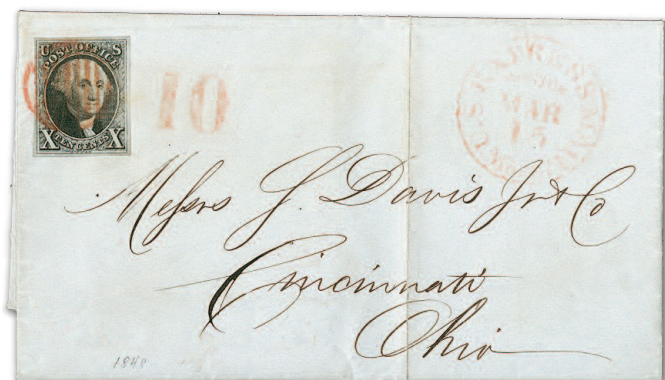 U S
POST OFFICE
X X
TEN CENTS
10
U.S. EXPRESS MAIL
BOSTON
MAR
15
Messrs J. Davis Jr & Co
Cincinnati
Ohio
1848